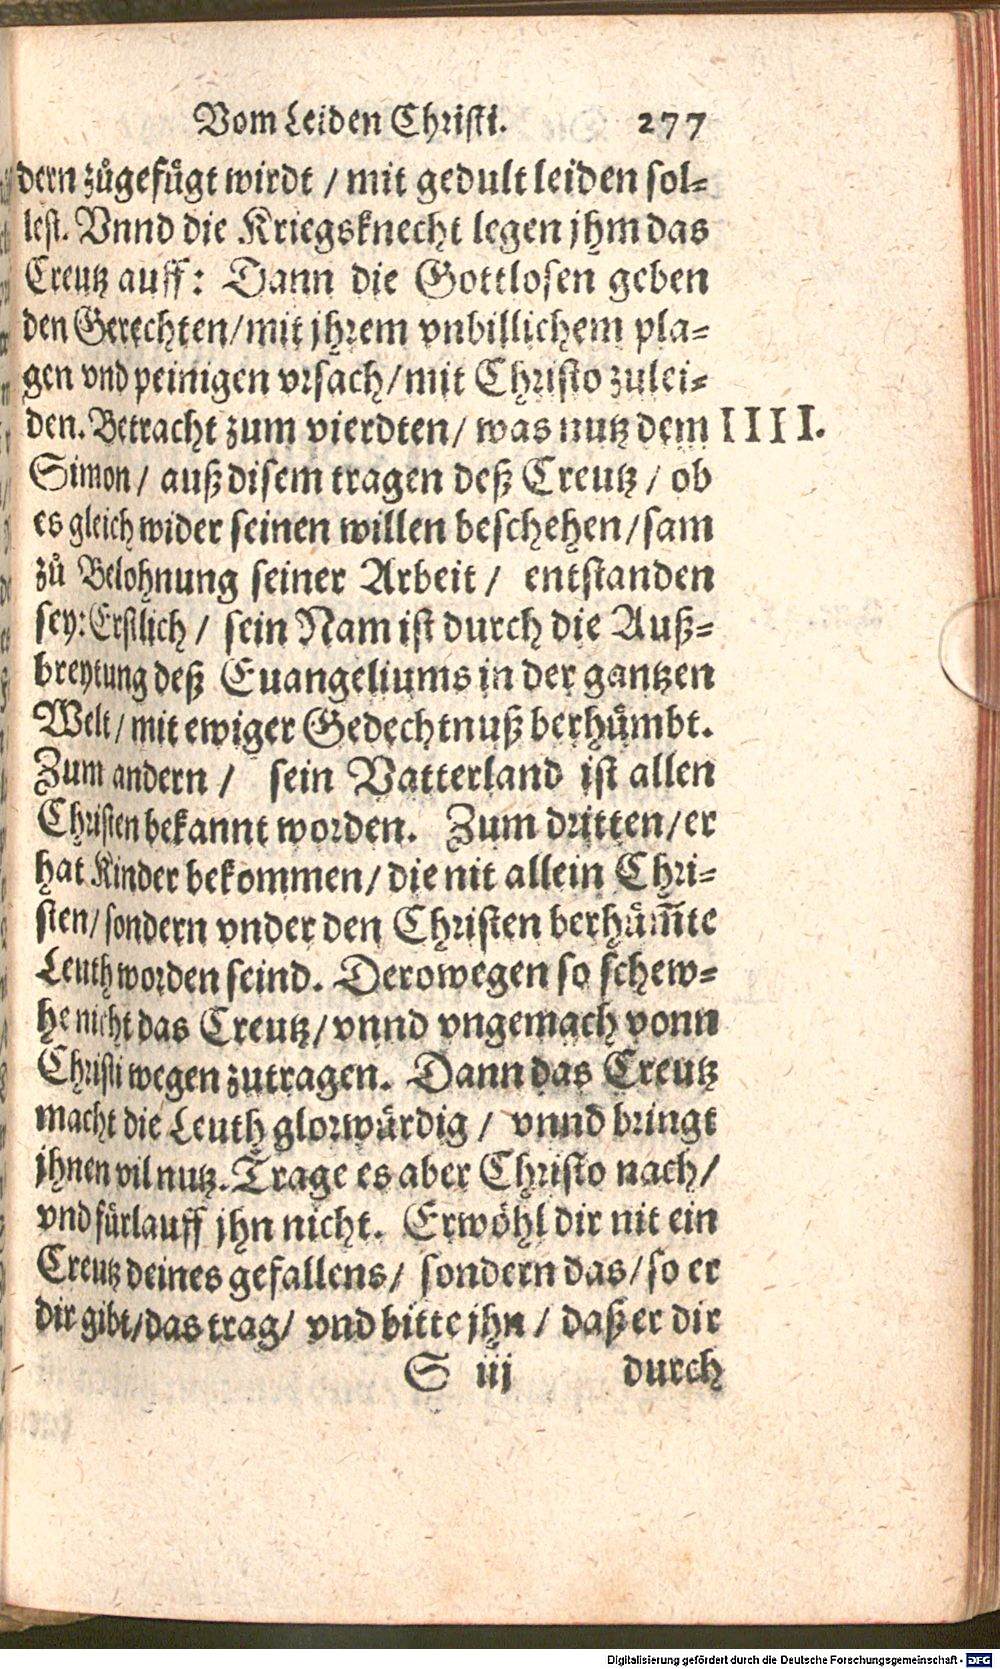 Vom Leiden Christi. 277
dern zůgefůgt wirdt / mit gedult leiden sol⸗
lest. Vnnd die Kriegsknecht legen jhm das
Creutz auff: Dann die Gottlosen geben
den Gerechten/mit jhrem vnbillichem pla⸗
gen vnd peinigen vrsach/mit Christo zulei⸗
den. Betracht zum vierdten/ was nutz dem IIII.
Simon/ auß disem tragen deß Creutz / ob
es gleich wider seinen willen beschehen/sam
zů Belohnung seiner Arbeit / entstanden
sey: Erstlich / sein Nam ist durch die Auß⸗
breytung deß Euangeliums in der gantzen
Welt / mit ewiger Gedechtnuß berhůmbt.
Zum andern / sein Vatterland ist allen
Christen bekannt worden. Zum dritten/er
hat Kinder bekommen/ die nit allein Chri⸗
sten/sondern vnder den Christen berhům̃te
Leuth worden seind. Derowegen so schew⸗
he nicht das Creutz/vnnd vngemach vonn
Christi wegen zutragen. Dann das Creutz
macht die Leuth glorwürdig / vnnd bringt
jhnen vil nutz. Trage es aber Christo nach/
vnd fürlauff jhn nicht. Erwöhl dir nit ein
Creutz deines gefallens/ sondern das/so er
dir gibt/das trag/ vnd bitte jhn / daß er dir
S iij durch
Digitalisierung gefördert durch die Deutsche Forschungsgemeinschaft - DFG